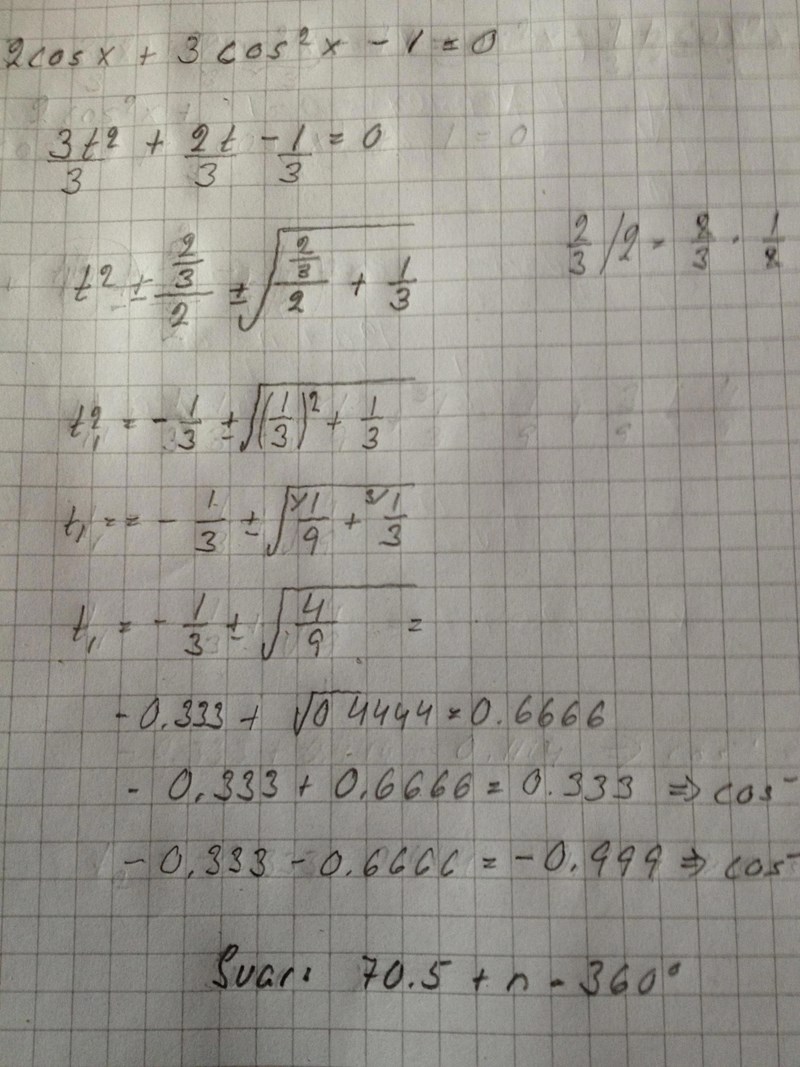 2cosx + 3cos²x - 1 = 0
3t²/3 + 2t/3 - 1/3 = 0
t² ± (2/3)/2 ± √((2/3)/2 + 1/3)
2/3 / 2 = 2/3 · 1/2
t²₁ = - 1/3 ± √((1/3)² + 1/3)
t₁ = = - 1/3 ± √(1/9 + ³⁾1/3)
t₁ = - 1/3 ± √(4/9) =
- 0.333 + √0 4444 = 0.6666
- 0.333 + 0.6666 = 0.333 ⇒ cos⁻
- 0.333 - 0.6666 = - 0.999 ⇒ cos⁻
Svar: 70.5 + n · 360°